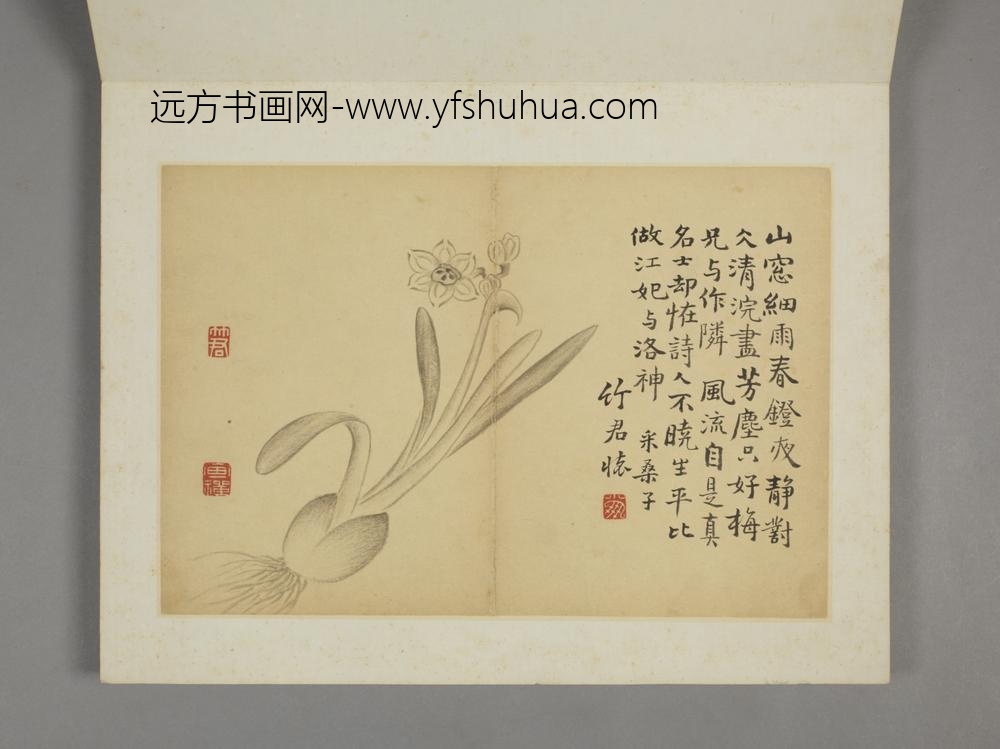 远方书画网-www.yfshuhua.com
山窓細雨春鐙夜靜對
仌清浣盡芳塵只好梅
兄与作隣 風流自是真
名士却恠詩人不曉生平比
做江妃与洛神 采桑子
竹君